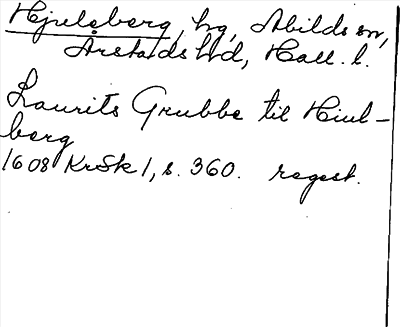 Hjulsberg, hg, Abilds sn,
Årstads hd, Hall. l.
Laurits Grubbe til Hiul-
berg
1608 KrSk 1, s. 360. regest.